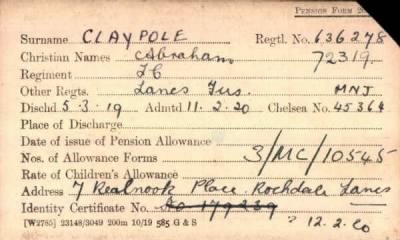 PENSION FORM 20
Surname CLAYPOLE Regtl. No. 636278
Christian Names Abraham 72319.
Regiment LC
Other Regts. Lancs Fus. MNJ
Dischd 5.3.19 Admtd 11.2.20 Chelsea No. 45364
Place of Discharge
Date of issue of Pension Allowance
Nos. of Allowance Forms 3/MC/10545
Rate of Children's Allowance
Address 7 Place Rochdale Lancs
Identity Certificate No. 179239
[W2785] 23148/3049 200m 10/19 585 G & S 12.2.20